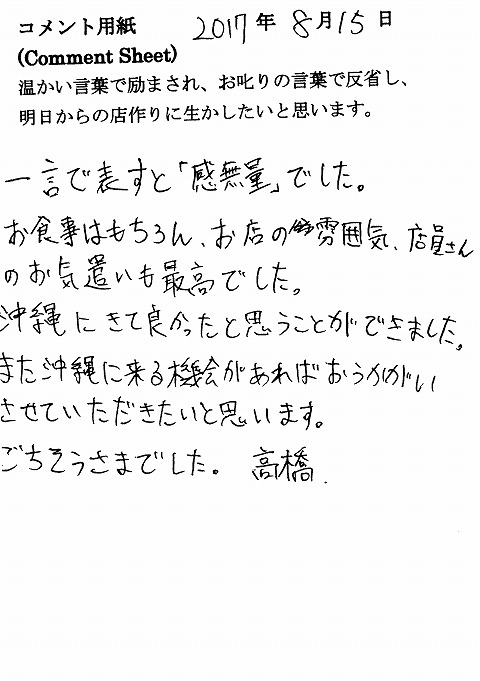 コメント用紙 2017年 8月15日
(Comment Sheet)
温かい言葉で励まされ、お叱りの言葉で反省し、
明日からの店作りに生かしたいと思います。
一言で表すと「感無量」でした。
お食事はもちろん、お店の雰囲気、店員さん
のお気遣いも最高でした。
沖縄にきて良かったと思うことができました。
また沖縄に来る機会があればおうかがい
させていただきたいと思います。
ごちそうさまでした。 高橋.